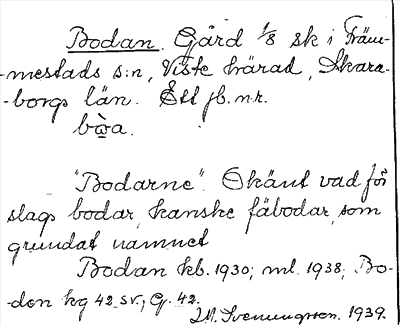 Bodan. Gård 1/8 sk i Främ-
-mestads s:n, Viste härad, Skara-
-borgs län. Ett jb.nr.
bὼa.
"Bodarne". Okänt vad för
slags bodar, kanske fäbodar, som
grundat namnet
Bodan kb. 1930; ml. 1938; Bo-
-den hg 42. sv.; G. 42.
Svenungsson. 1939.